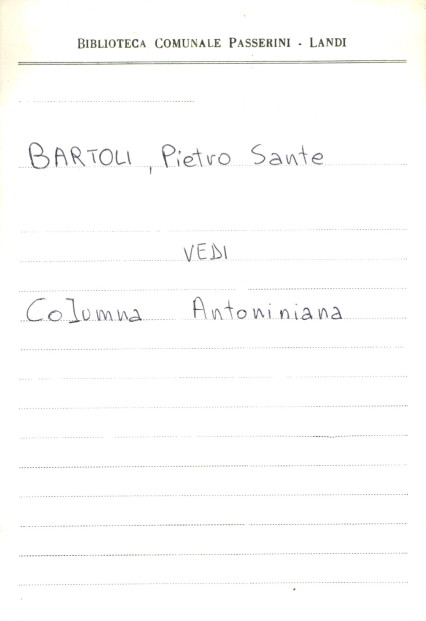 BIBLIOTECA COMUNALE PASSERINI - LANDI
BARTOLI, Pietro Sante
VEDI
Columna Antoniniana